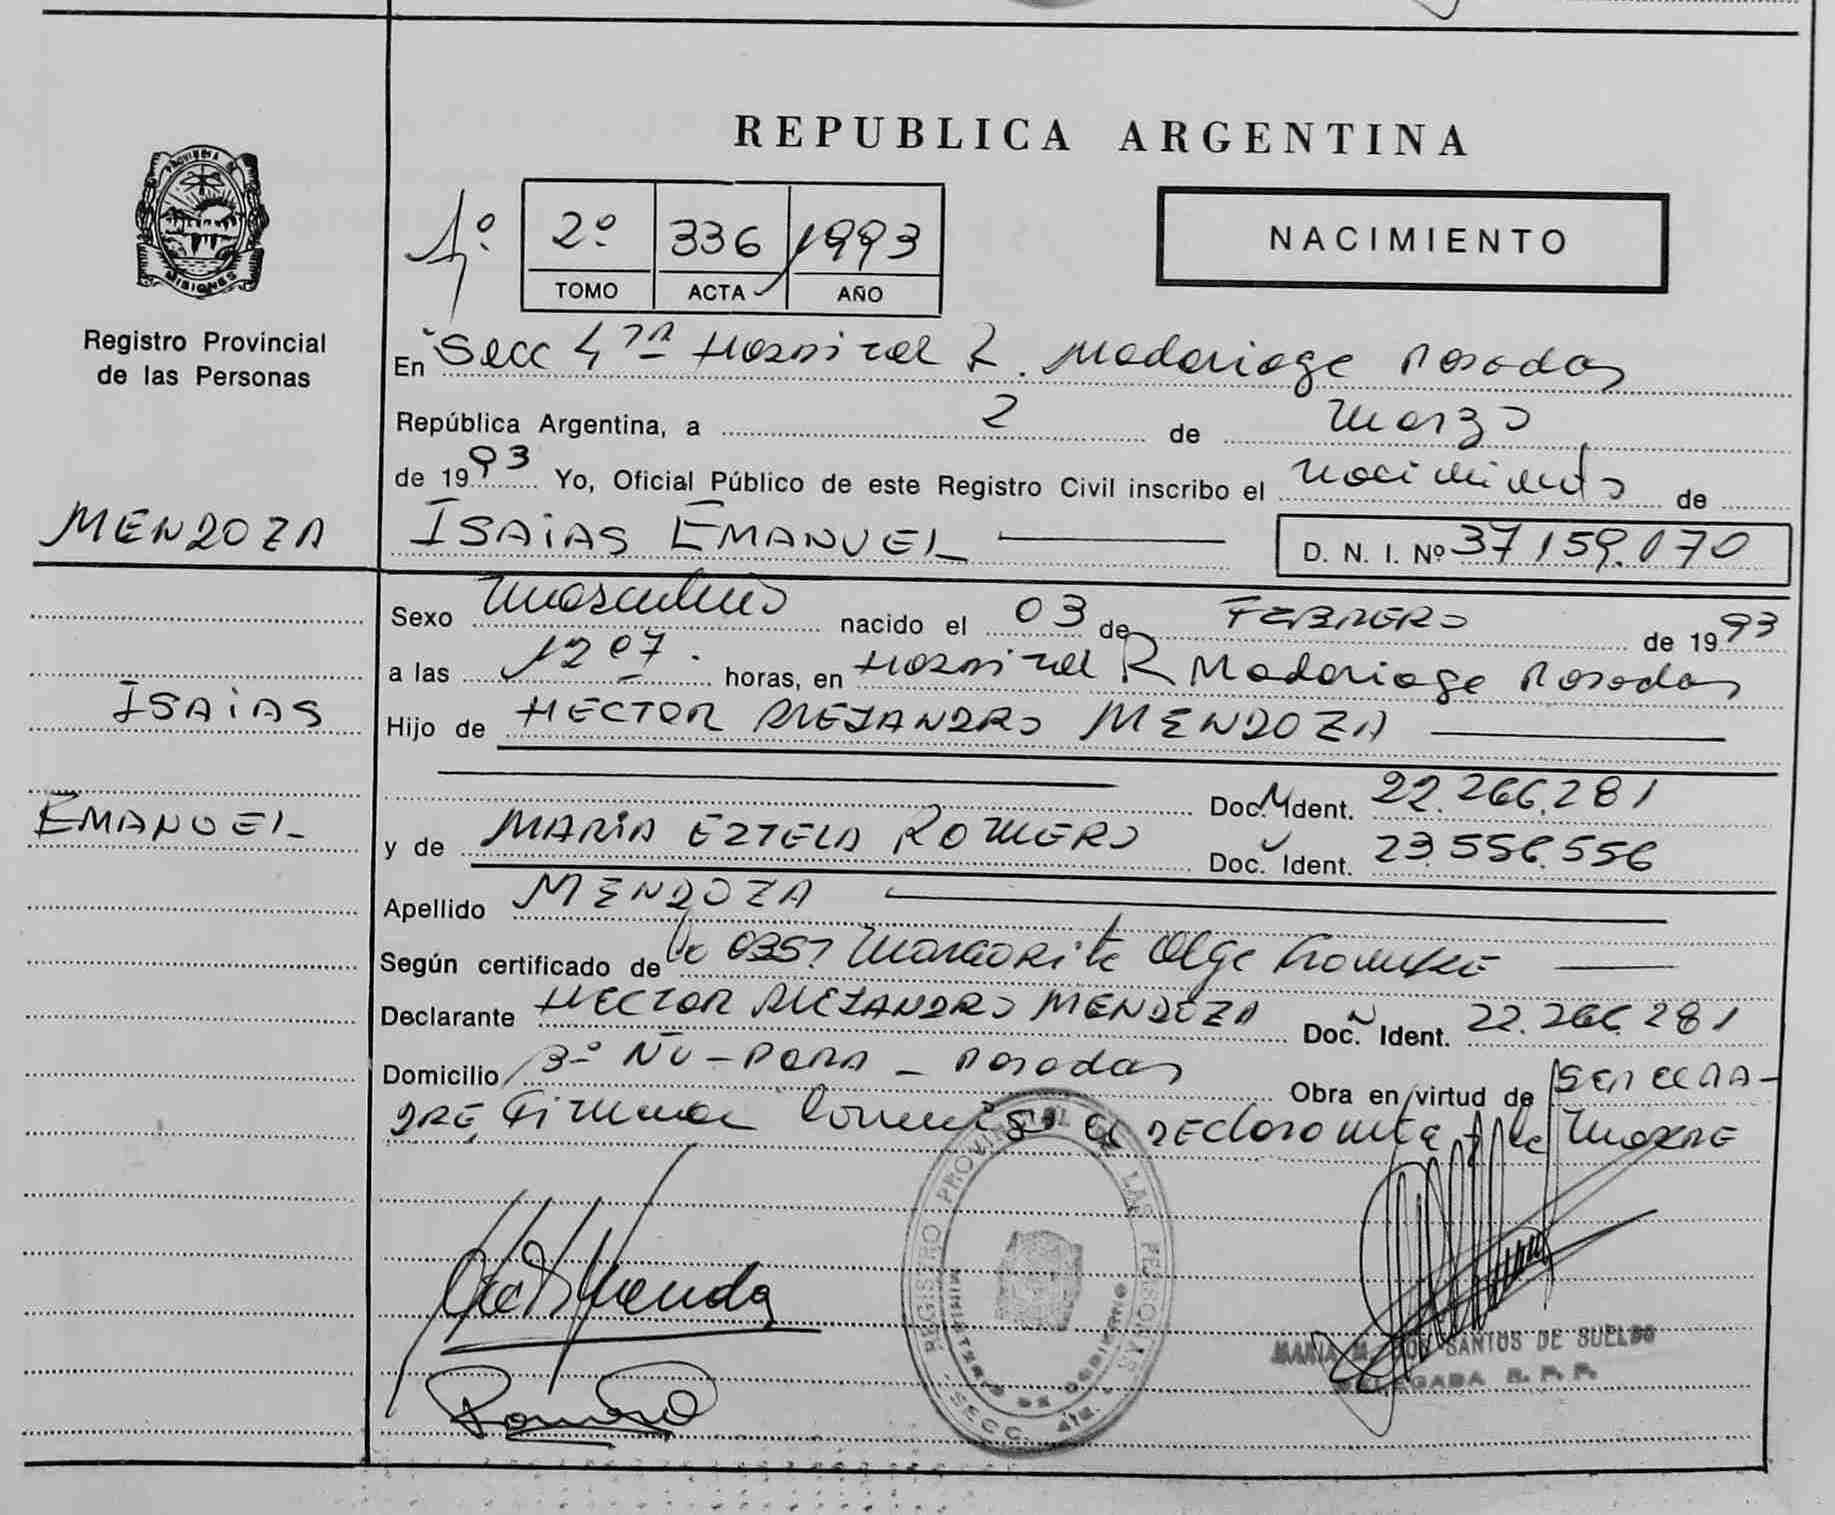 REPUBLICA ARGENTINA
PROVINCIA DE
MISIONES
Registro Provincial
de las Personas
1º
2º 336 1993
TOMO ACTA AÑO
NACIMIENTO
En Secc 4ta Hospital R. Madariaga Posadas
República Argentina, a 2 de Marzo
de 1993 Yo, Oficial Público de este Registro Civil inscribo el nacimiento de
MENDOZA
ISAIAS EMANUEL
D. N. I. Nº 37159.070
Sexo Masculino nacido el 03 de FEBRERO de 1993
a las 12 07. horas, en Hospital R Madariaga Posadas
ISAIAS
Hijo de HECTOR ALEJANDRO MENDOZA
Doc. Ident. 22.266.281
EMANUEL
y de MARIA EZTELA ROMERO Doc. Ident. 23.556.556
Apellido MENDOZA
Según certificado de 0357 Margarita Olga
Declarante HECTOR ALEJANDRO MENDOZA Doc. Ident. 22.266.281
Domicilio Bº ÑU-PORA - Posadas Obra en virtud de SER EL PA-
DRE, Firman conmigo el DEClarante y la MADRE
REGISTRO PROVINCIAL DE LAS PERSONAS
MINISTERIO DE GOBIERNO
SECC. 4ta.
Romero
MARIA M. DOS SANTOS DE SUELDO
DELEGADA R. P. P.